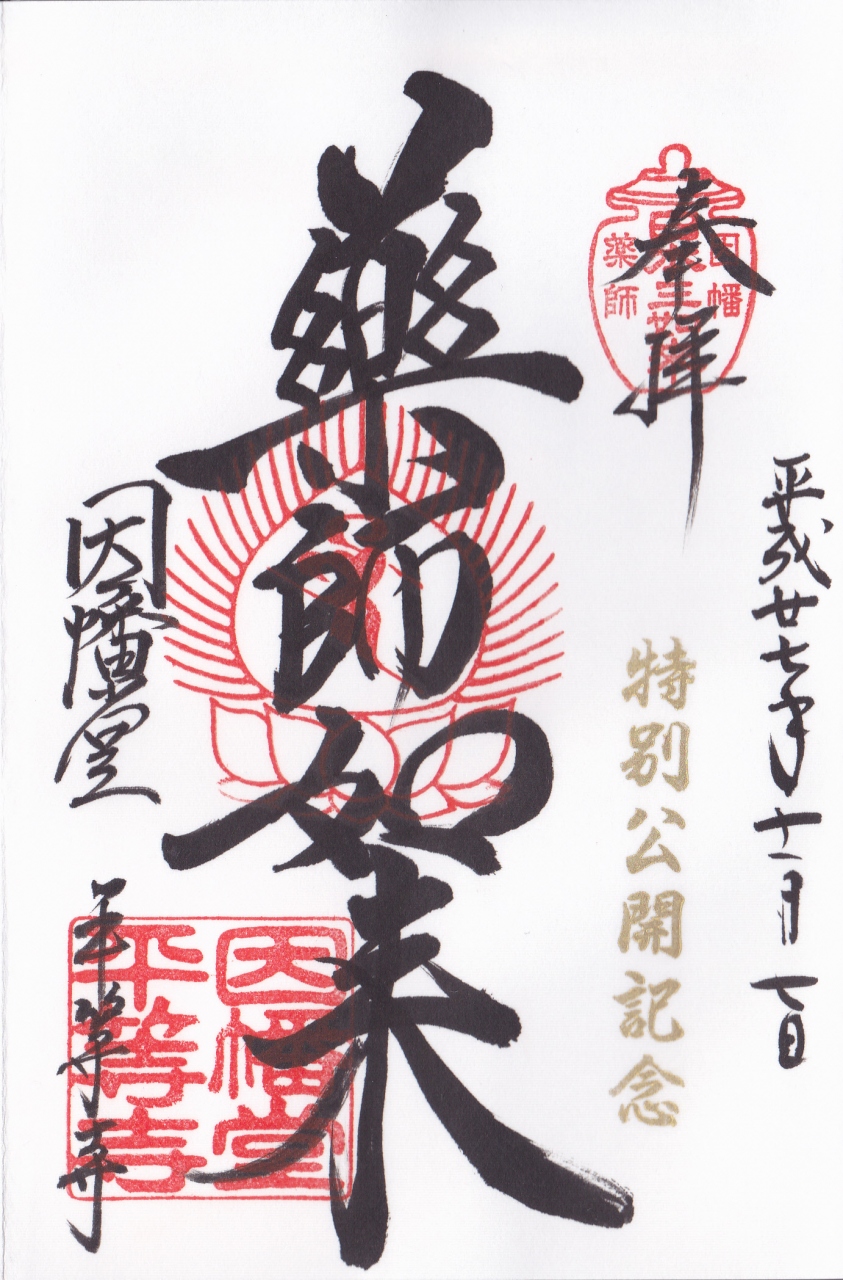 平成廿七年十一月七日
奉拝
因幡
薬師
特別公開記念
薬師如来
因幡堂
平等寺
因幡堂
平等寺